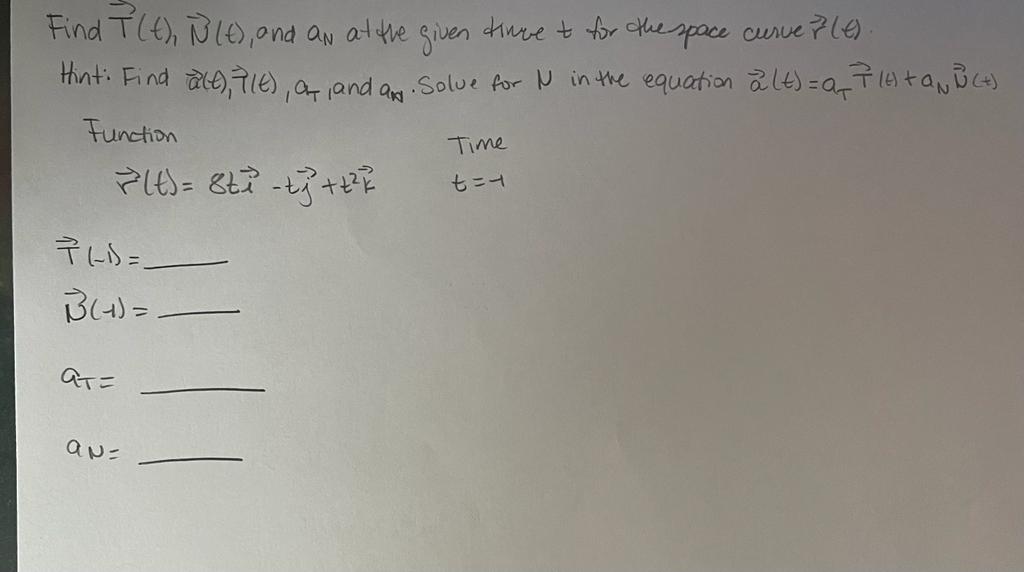 Find T⃗(t), N⃗(t), and aN at the given time t for the space curve r⃗(t).
Hint: Find a⃗(t), T⃗(t), aT, and aN. Solve for N in the equation a⃗(t) = aT T⃗(t) + aN N⃗(t)
Function Time
r⃗(t) = 8ti⃗ - tj⃗ + t²k⃗ t = -1
T⃗(-1) = ____
N⃗(-1) = ____
aT = ____
aN = ____